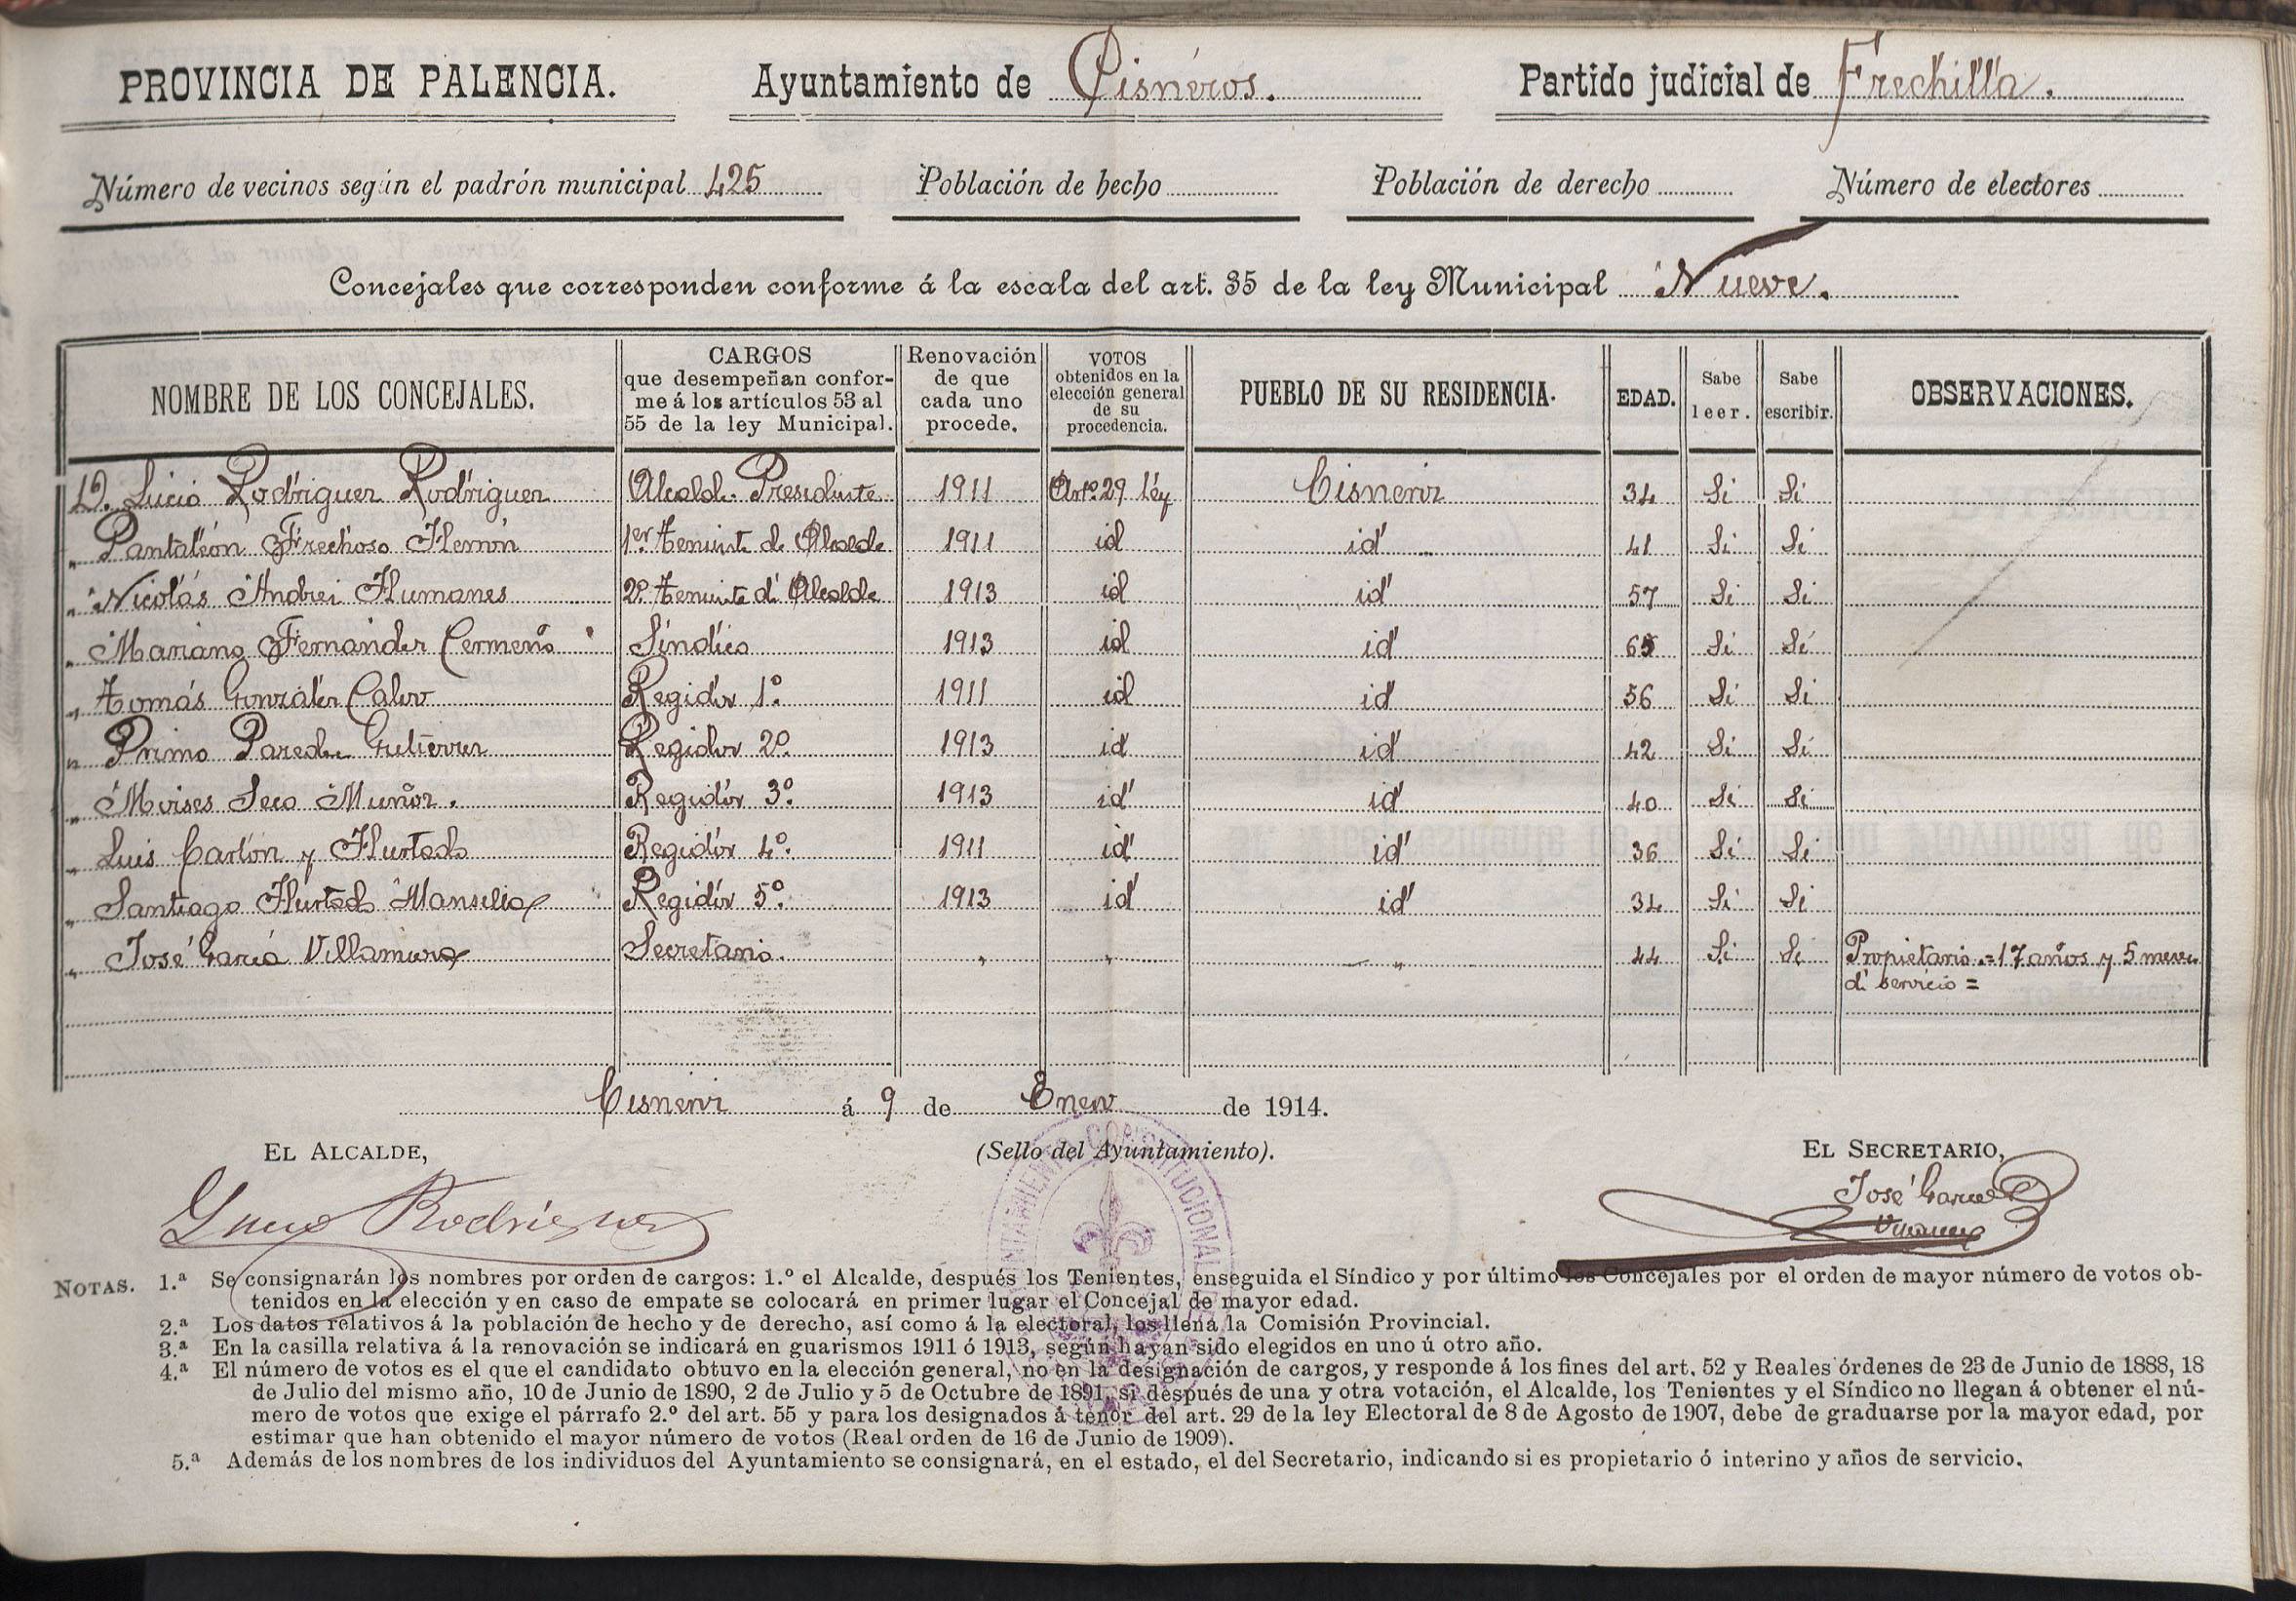 PROVINCIA DE PALENCIA. Ayuntamiento de Cisneros. Partido judicial de Frechilla.
Número de vecinos según el padrón municipal 425 Población de hecho Población de derecho Número de electores
Concejales que corresponden conforme á la escala del art. 35 de la ley Municipal Nueve.
NOMBRE DE LOS CONCEJALES. CARGOS que desempeñan conforme á los artículos 53 al 55 de la ley Municipal. Renovación de que cada uno procede. VOTOS obtenidos en la elección general de su procedencia. PUEBLO DE SU RESIDENCIA. EDAD. Sabe leer. Sabe escribir. OBSERVACIONES.
D. Lucio Rodriguez Rodriguez Alcalde Presidente 1911 Arto. 29 ley Cisneros 34 Si Si
" Pantaleón Frechoso 1er Teniente de Alcalde 1911 id id 41 Si Si
" Nicolás Andrés Humanes 2º Teniente de Alcalde 1913 id id 57 Si Si
" Mariano Fernandez Cermeño Síndico 1913 id id 65 Si Si
" Tomás González Calvo Regidor 1º 1911 id id 56 Si Si
" Primo Paredes Gutierrez Regidor 2º. 1913 id id 42 Si Si
" Moises Seco Muñoz. Regidor 3º. 1913 id id 40 Si Si
" Luis Carlón y Hurtado Regidor 4º. 1911 id id 36 Si Si
" Santiago Hurtado Mansilla Regidor 5º. 1913 id id 34 Si Si
" José García Villamuera Secretario. " " " 44 Si Si Propietario.=17 años y 5 meses
de servicio=
Cisneros á 9 de Enero de 1914.
EL ALCALDE, (Sello del Ayuntamiento). EL SECRETARIO,
AYUNTAMIENTO CONSTITUCIONAL
Lucio Rodriguez José García
Villamuera
NOTAS. 1.ª Se consignarán los nombres por orden de cargos: 1.º el Alcalde, después los Tenientes, enseguida el Síndico y por último los Concejales por el orden de mayor número de votos ob-
tenidos en la elección y en caso de empate se colocará en primer lugar el Concejal de mayor edad.
2.ª Los datos relativos á la población de hecho y de derecho, así como á la electoral, los llena la Comisión Provincial.
3.ª En la casilla relativa á la renovación se indicará en guarismos 1911 ó 1913, según hayan sido elegidos en uno ú otro año.
4.ª El número de votos es el que el candidato obtuvo en la elección general, no en la designación de cargos, y responde á los fines del art. 52 y Reales órdenes de 23 de Junio de 1888, 18
de Julio del mismo año, 10 de Junio de 1890, 2 de Julio y 5 de Octubre de 1891, si después de una y otra votación, el Alcalde, los Tenientes y el Síndico no llegan á obtener el nú-
mero de votos que exige el párrafo 2.º del art. 55 y para los designados á tenor del art. 29 de la ley Electoral de 8 de Agosto de 1907, debe de graduarse por la mayor edad, por
estimar que han obtenido el mayor número de votos (Real orden de 16 de Junio de 1909).
5.ª Además de los nombres de los individuos del Ayuntamiento se consignará, en el estado, el del Secretario, indicando si es propietario ó interino y años de servicio.